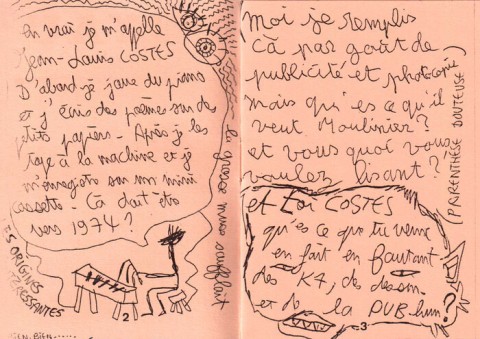 en vrai je m'appelle
Jean-Louis COSTES
D'abord je joue du piano
et j'écris des poèmes sur des
petits papiers - Après je les
tape à la machine et je
m'enregistre sur mn mini
cassette - Cà doit être
vers 1974?
la grosse muse soufflait
ES ORIGINES
2
GEN. BIEN.....
Moi je remplis
Cà par goût de
publicité et photocopie
mais qui es ce qu'il
veut Moulinier?
et vous quoi vous
voulez lisant?
(PARENTHÈSE DOUTEUSE)
et toi COSTES
qu'es ce que tu veux
en fait en foutant
des K7, de dessin
et de la PUB hum?
3